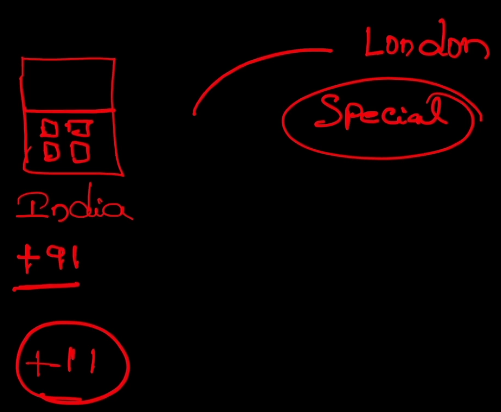 London
Special
India
+91
+11